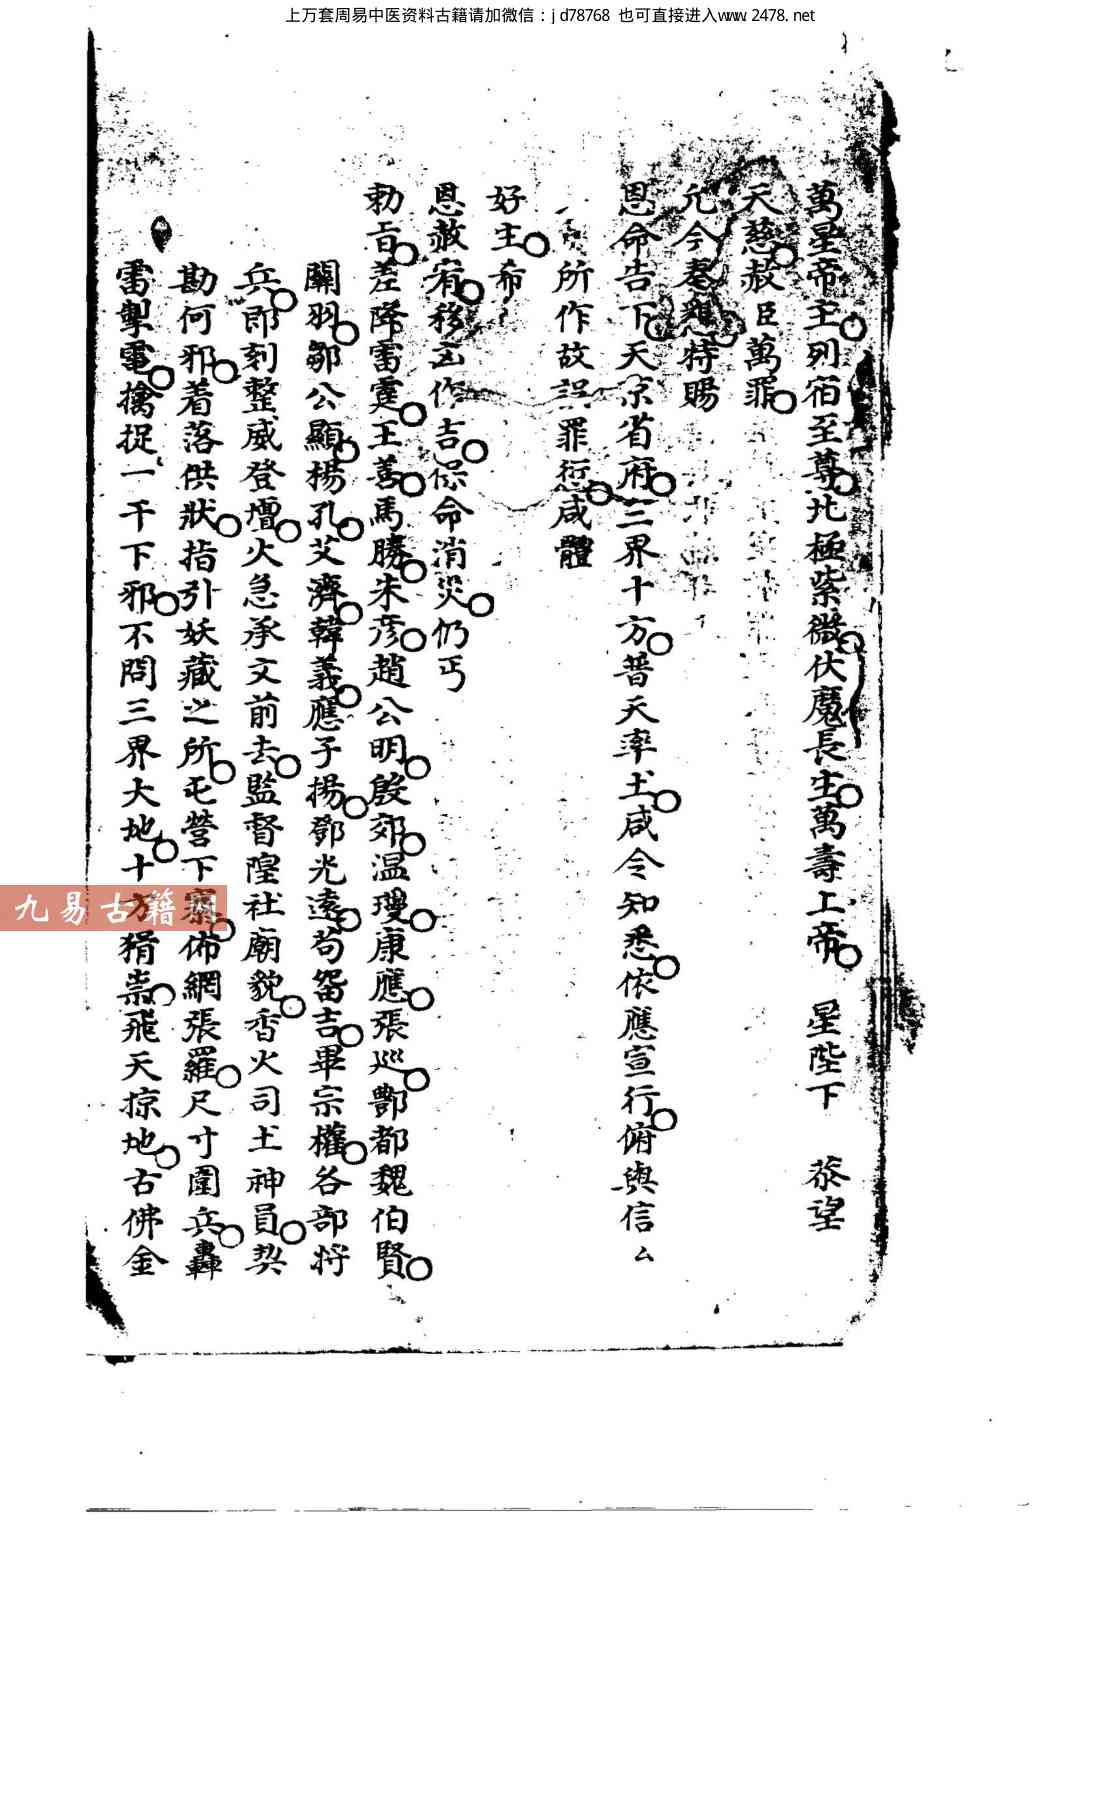 上万套周易中医资料古籍请加微信：jd78768 也可直接进入www.2478.net
萬星帝主列宿至尊北極紫微伏魔長生萬壽上帝 星陛下 恭望
天慈赦臣萬罪
允今奏懇特賜
恩命告下天京省府三界十方普天率土咸令知悉依應宣行俯與信厶
所作故誤罪愆咸體
好生希
恩赦宥移凶作吉保命消災仍丐
勅旨差降雷霆王善馬勝朱彦趙公明殷郊温瓊康應張巡酆都魏伯賢
關羽鄒公顯楊孔艾濟韓義應子揚鄧光遠苟留吉畢宗權各部将
兵即刻整威登壇火急承文前去監督隍社廟貌香火司土神員契
勘何邪着落供狀指引妖藏之所屯營下寨佈網張羅尺寸圍兵轟
雷掣電擒捉一干下邪不問三界大地十方猖祟飛天掠地古佛金
九易古籍网